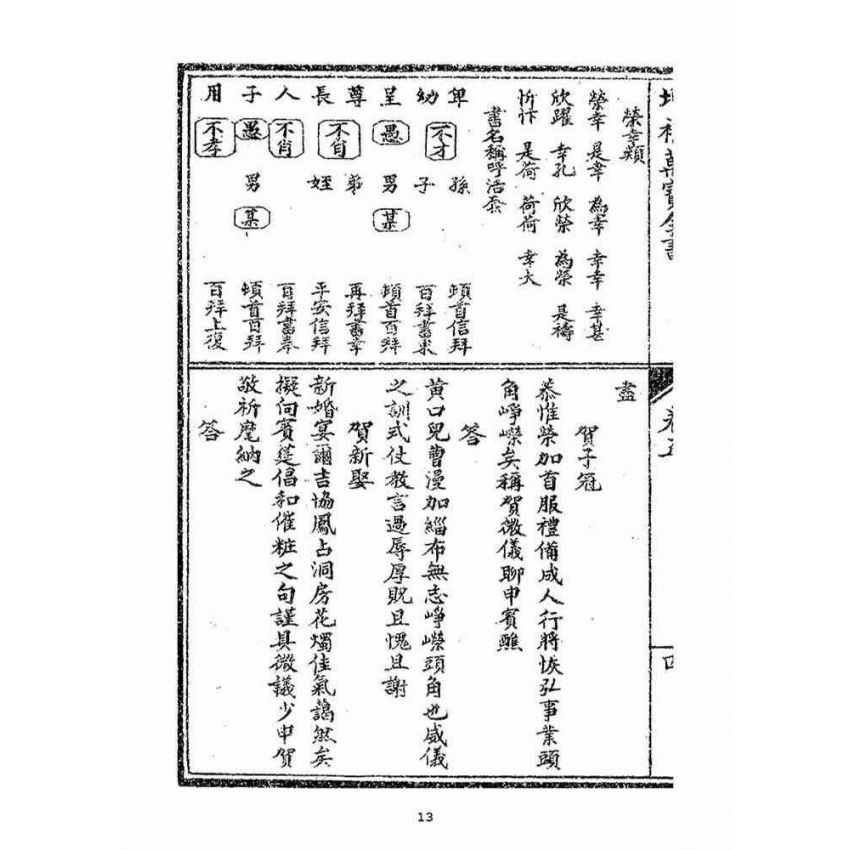 榮幸類
榮幸 是幸 為幸 幸幸 幸甚
欣躍 幸孔 欣榮 為榮 是禱
忻忭 是荷 荷荷 幸大
書名稱呼活套
卑 孫 頓首信拜
幼 不才 子 百拜書
呈 愚 男 某 頓首百拜
尊 不肖 弟 再拜書
長 姪 平安信拜
人 不肖 百拜書奉
子 愚 男 某 頓首百拜
用 不孝 百拜上復
盡
賀子冠
恭惟榮加首服禮備成人行將恢弘事業頭
角崢嶸矣稱賀微儀聊申賓醮
答
黃口兒曹漫加緇布無志崢嶸頭角也威儀
之訓式仗教言過辱厚貺且愧且謝
賀新娶
新婚宴爾吉協鳳占洞房花燭佳氣藹然矣
擬向賓筵倡和催粧之句謹具微議少申賀
敬祈麾納之
答
13